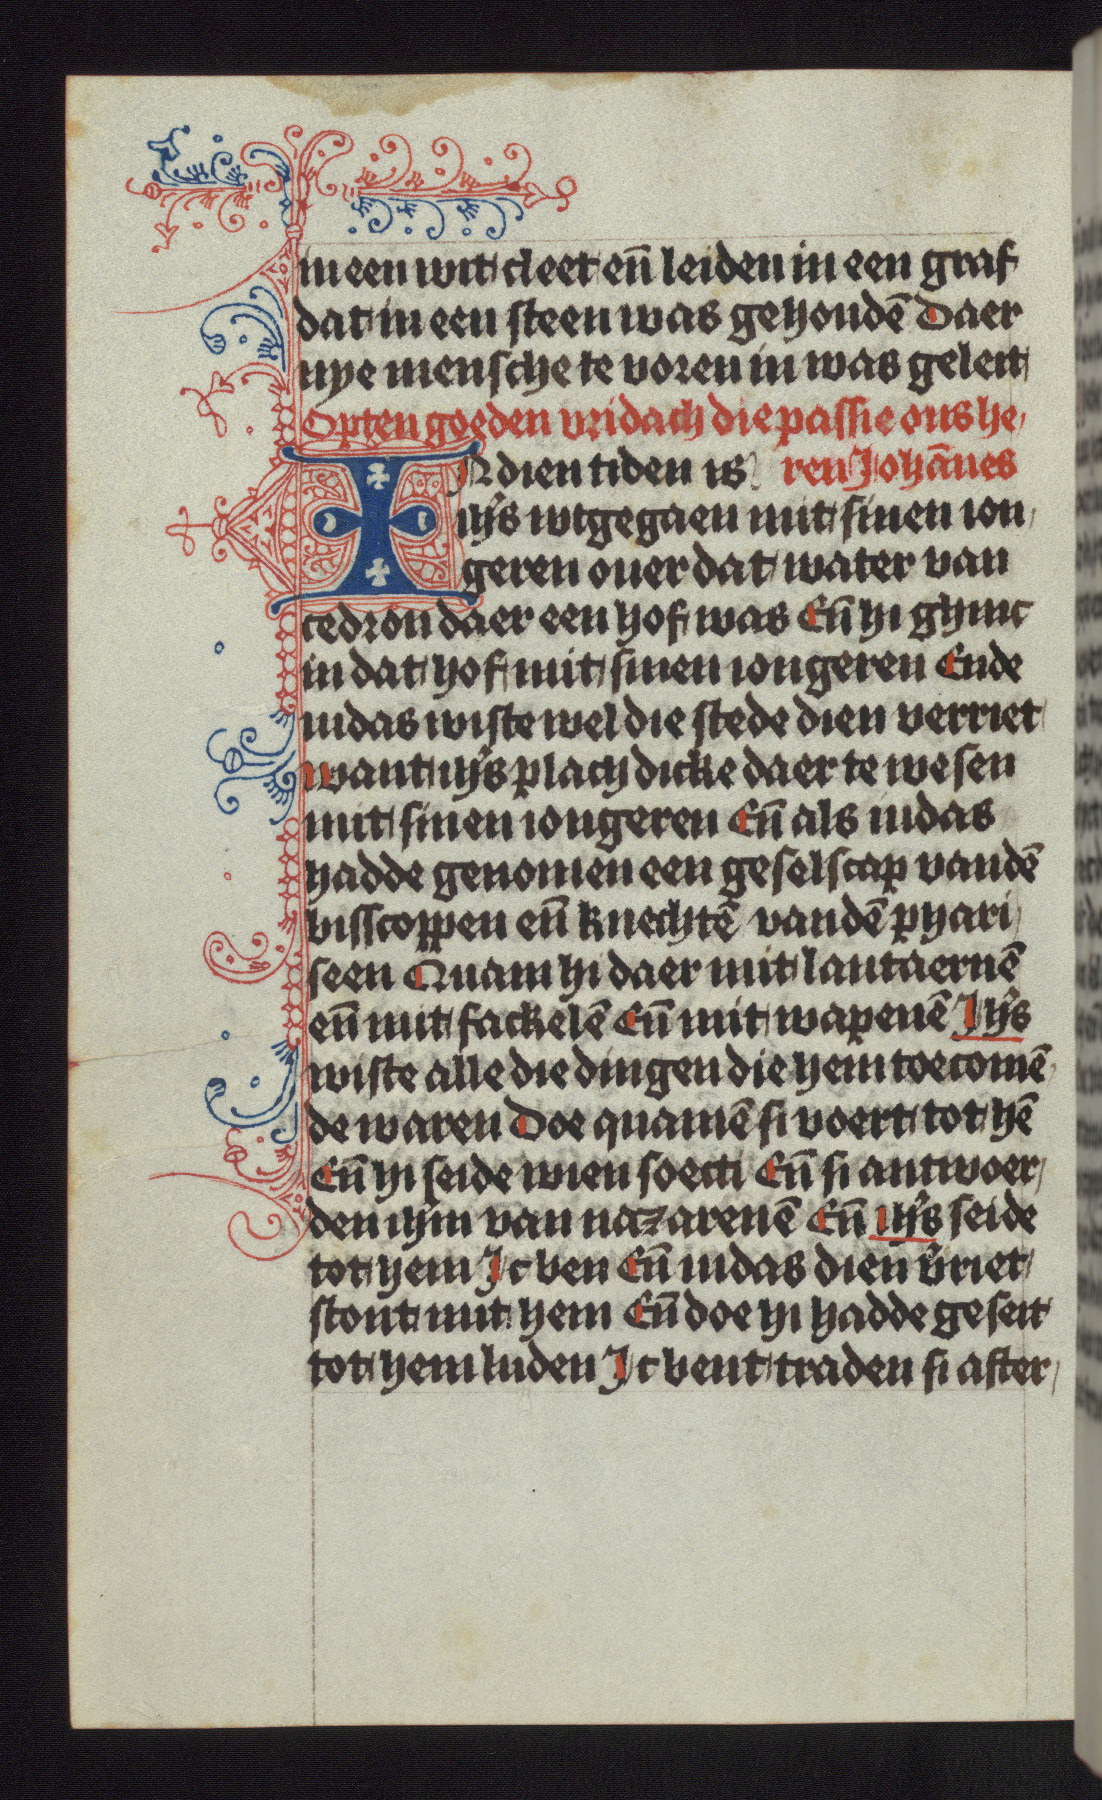 in een wit cleet en̄ leiden in een graf
dat in een steen was gehoudē Daer
nye mensche te voren in was geleit
Opten goeden vridach die passie ons he
IN dien tiden is ren Johānes
ihūs wtgegaen mit sinen ion
geren ouer dat water van
cedron daer een hof was En̄ hi ghinc
in dat hof mit sinen iongeren Ende
iudas wiste wel die stede dien verriet
want ihūs plach dicke daer te wesen
mit sinen iongeren En̄ als iudas
hadde genomen een geselscap vandē
bisscoppen en̄ knechtē vandē phari
seen Quam hi daer mit lantaernē
en̄ mit fackelē En̄ mit wapenē Jhūs
wiste alle die dingen die hem toecomē
de waren Doe quamē si voert tot hē
En̄ hi seide wien soecti En̄ si antwoer
den ihm van nazarenē En̄ ihūs seide
tot hem Ic ben En̄ iudas dien v̄riet
stont mit hem En̄ doe hi hadde geseit
tot hem luden Ic bent traden si after